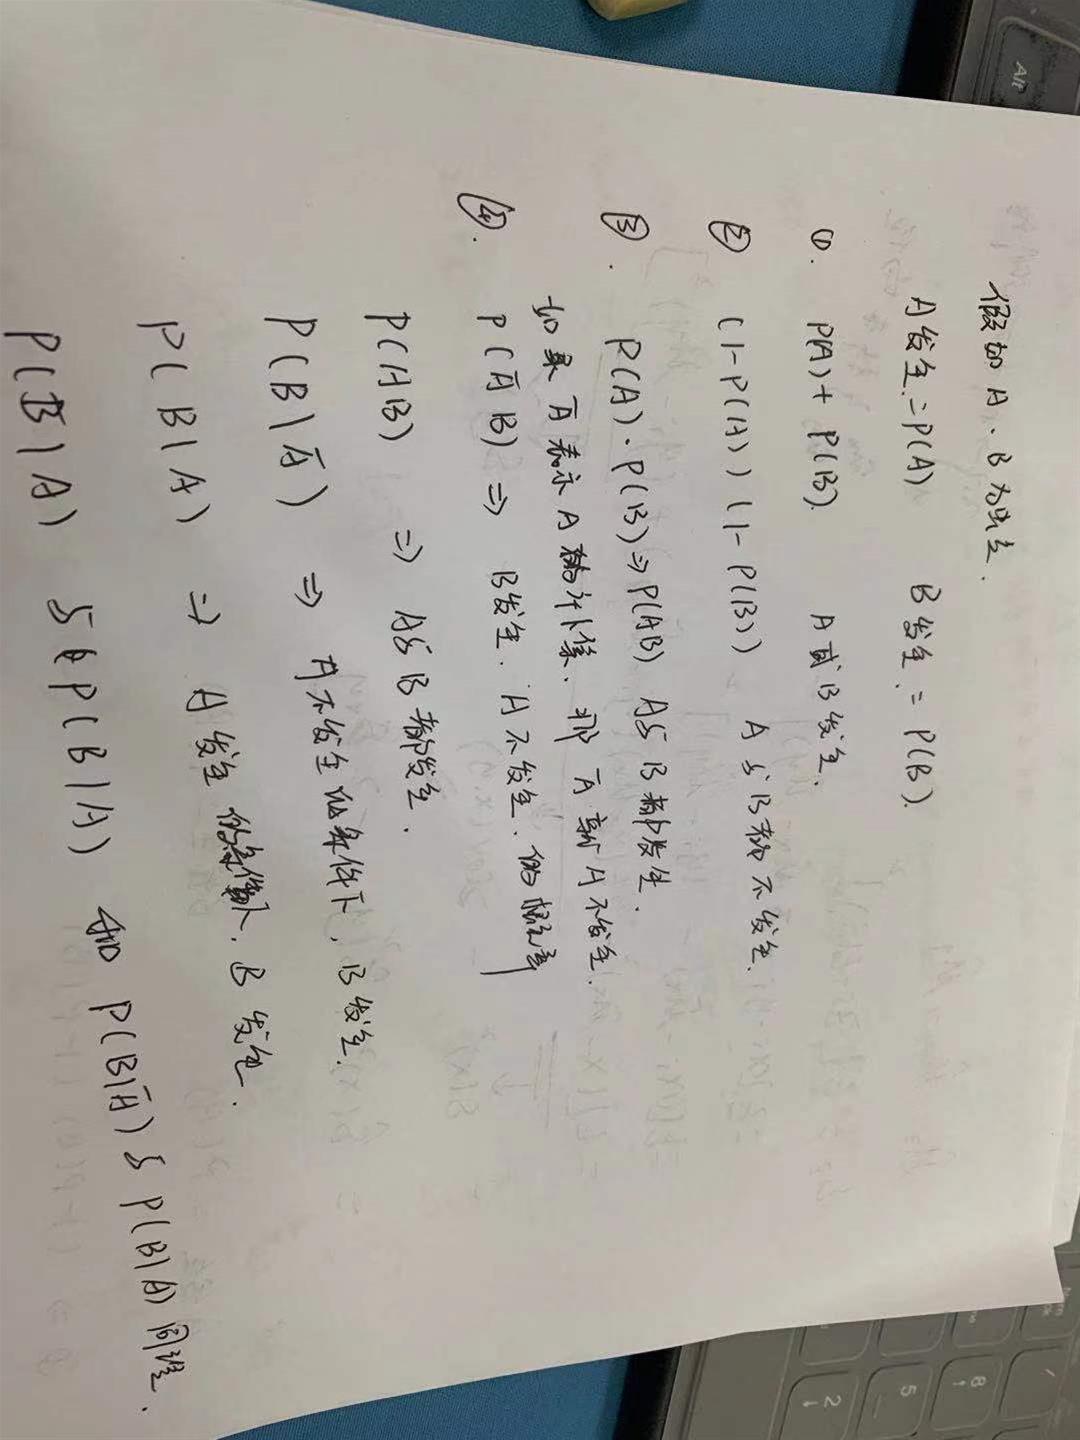 假如 A、B 为独立.
A发生 = P(A)   B发生 = P(B).
①. P(A) + P(B).   A或B发生.
② (1-P(A)) (1-P(B))   A与B都不发生.
③. P(A)·P(B) ⇒ P(AB) A与B都发生.
如果 Ā 表示 A 的补集. 那 Ā 就 A 不发生.
④. P(ĀB) ⇒ B发生. A不发生. 的概率
P(AB) ⇒ A与B都发生.
P(B|Ā) ⇒ A不发生的条件下, B发生.
P(B|A) ⇒ A发生的条件下, B发生.
P(B̄|A) 与 P(B|A) 和 P(B|Ā) 与 P(B|A) 同理.
Alt
8
5
2